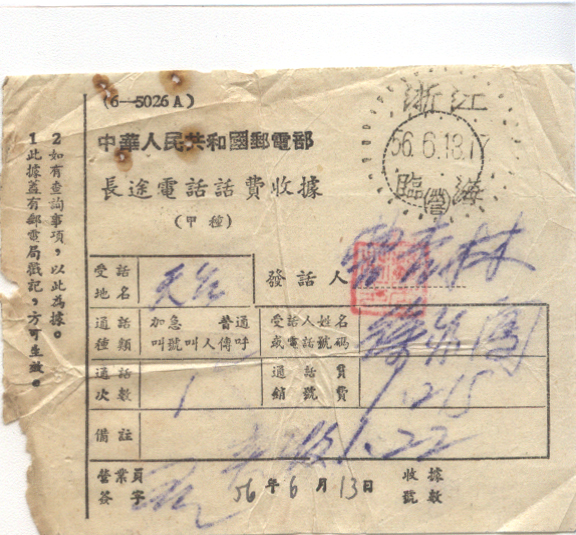 (6—5026A)
中華人民共和國郵電部
長途電話話費收據
(甲種)
浙江
56.6.13.17
臨海
1 此據蓋有郵電局戳記，方可生效。
2 如有查詢事項，以此為據。
受話地名 天台
發話人
通話種類
加急 普通
叫號 叫人 傳呼
受話人姓名或電話號碼
通話次數 1
通話費
銷號費
備註 1.22
營業員簽字
56年6月13日
收據號數